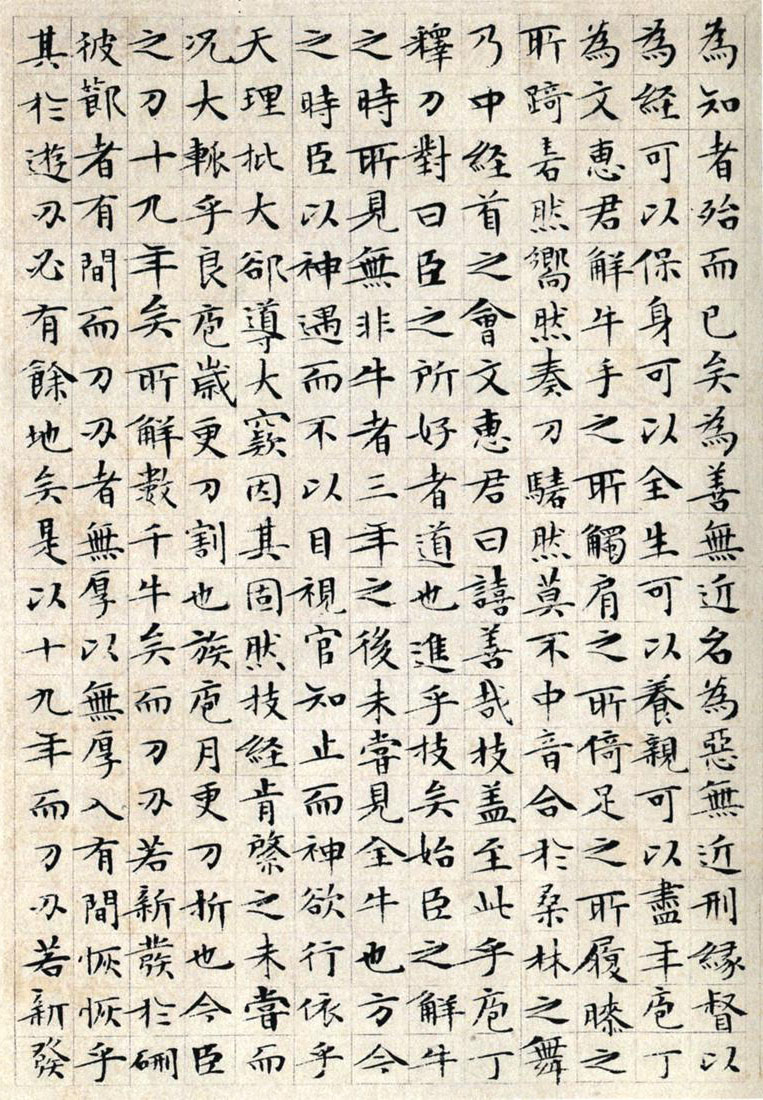 為知者殆而已矣為善無近名為惡無近刑緣督以
為經可以保身可以全生可以養親可以盡年庖丁
為文惠君解牛手之所觸肩之所倚足之所履膝之
所踦砉然嚮然奏刀騞然莫不中音合於桑林之舞
乃中經首之會文惠君曰譆善哉技蓋至此乎庖丁
釋刀對曰臣之所好者道也進乎技矣始臣之解牛
之時所見無非牛者三年之後未嘗見全牛也方今
之時臣以神遇而不以目視官知止而神欲行依乎
天理批大郤導大窾因其固然技經肯綮之未嘗而
况大軱乎良庖歲更刀割也族庖月更刀折也今臣
之刀十九年矣所解數千牛矣而刀刃若新發於硎
彼節者有間而刀刃者無厚以無厚入有間恢恢乎
其於遊刃必有餘地矣是以十九年而刀刃若新發